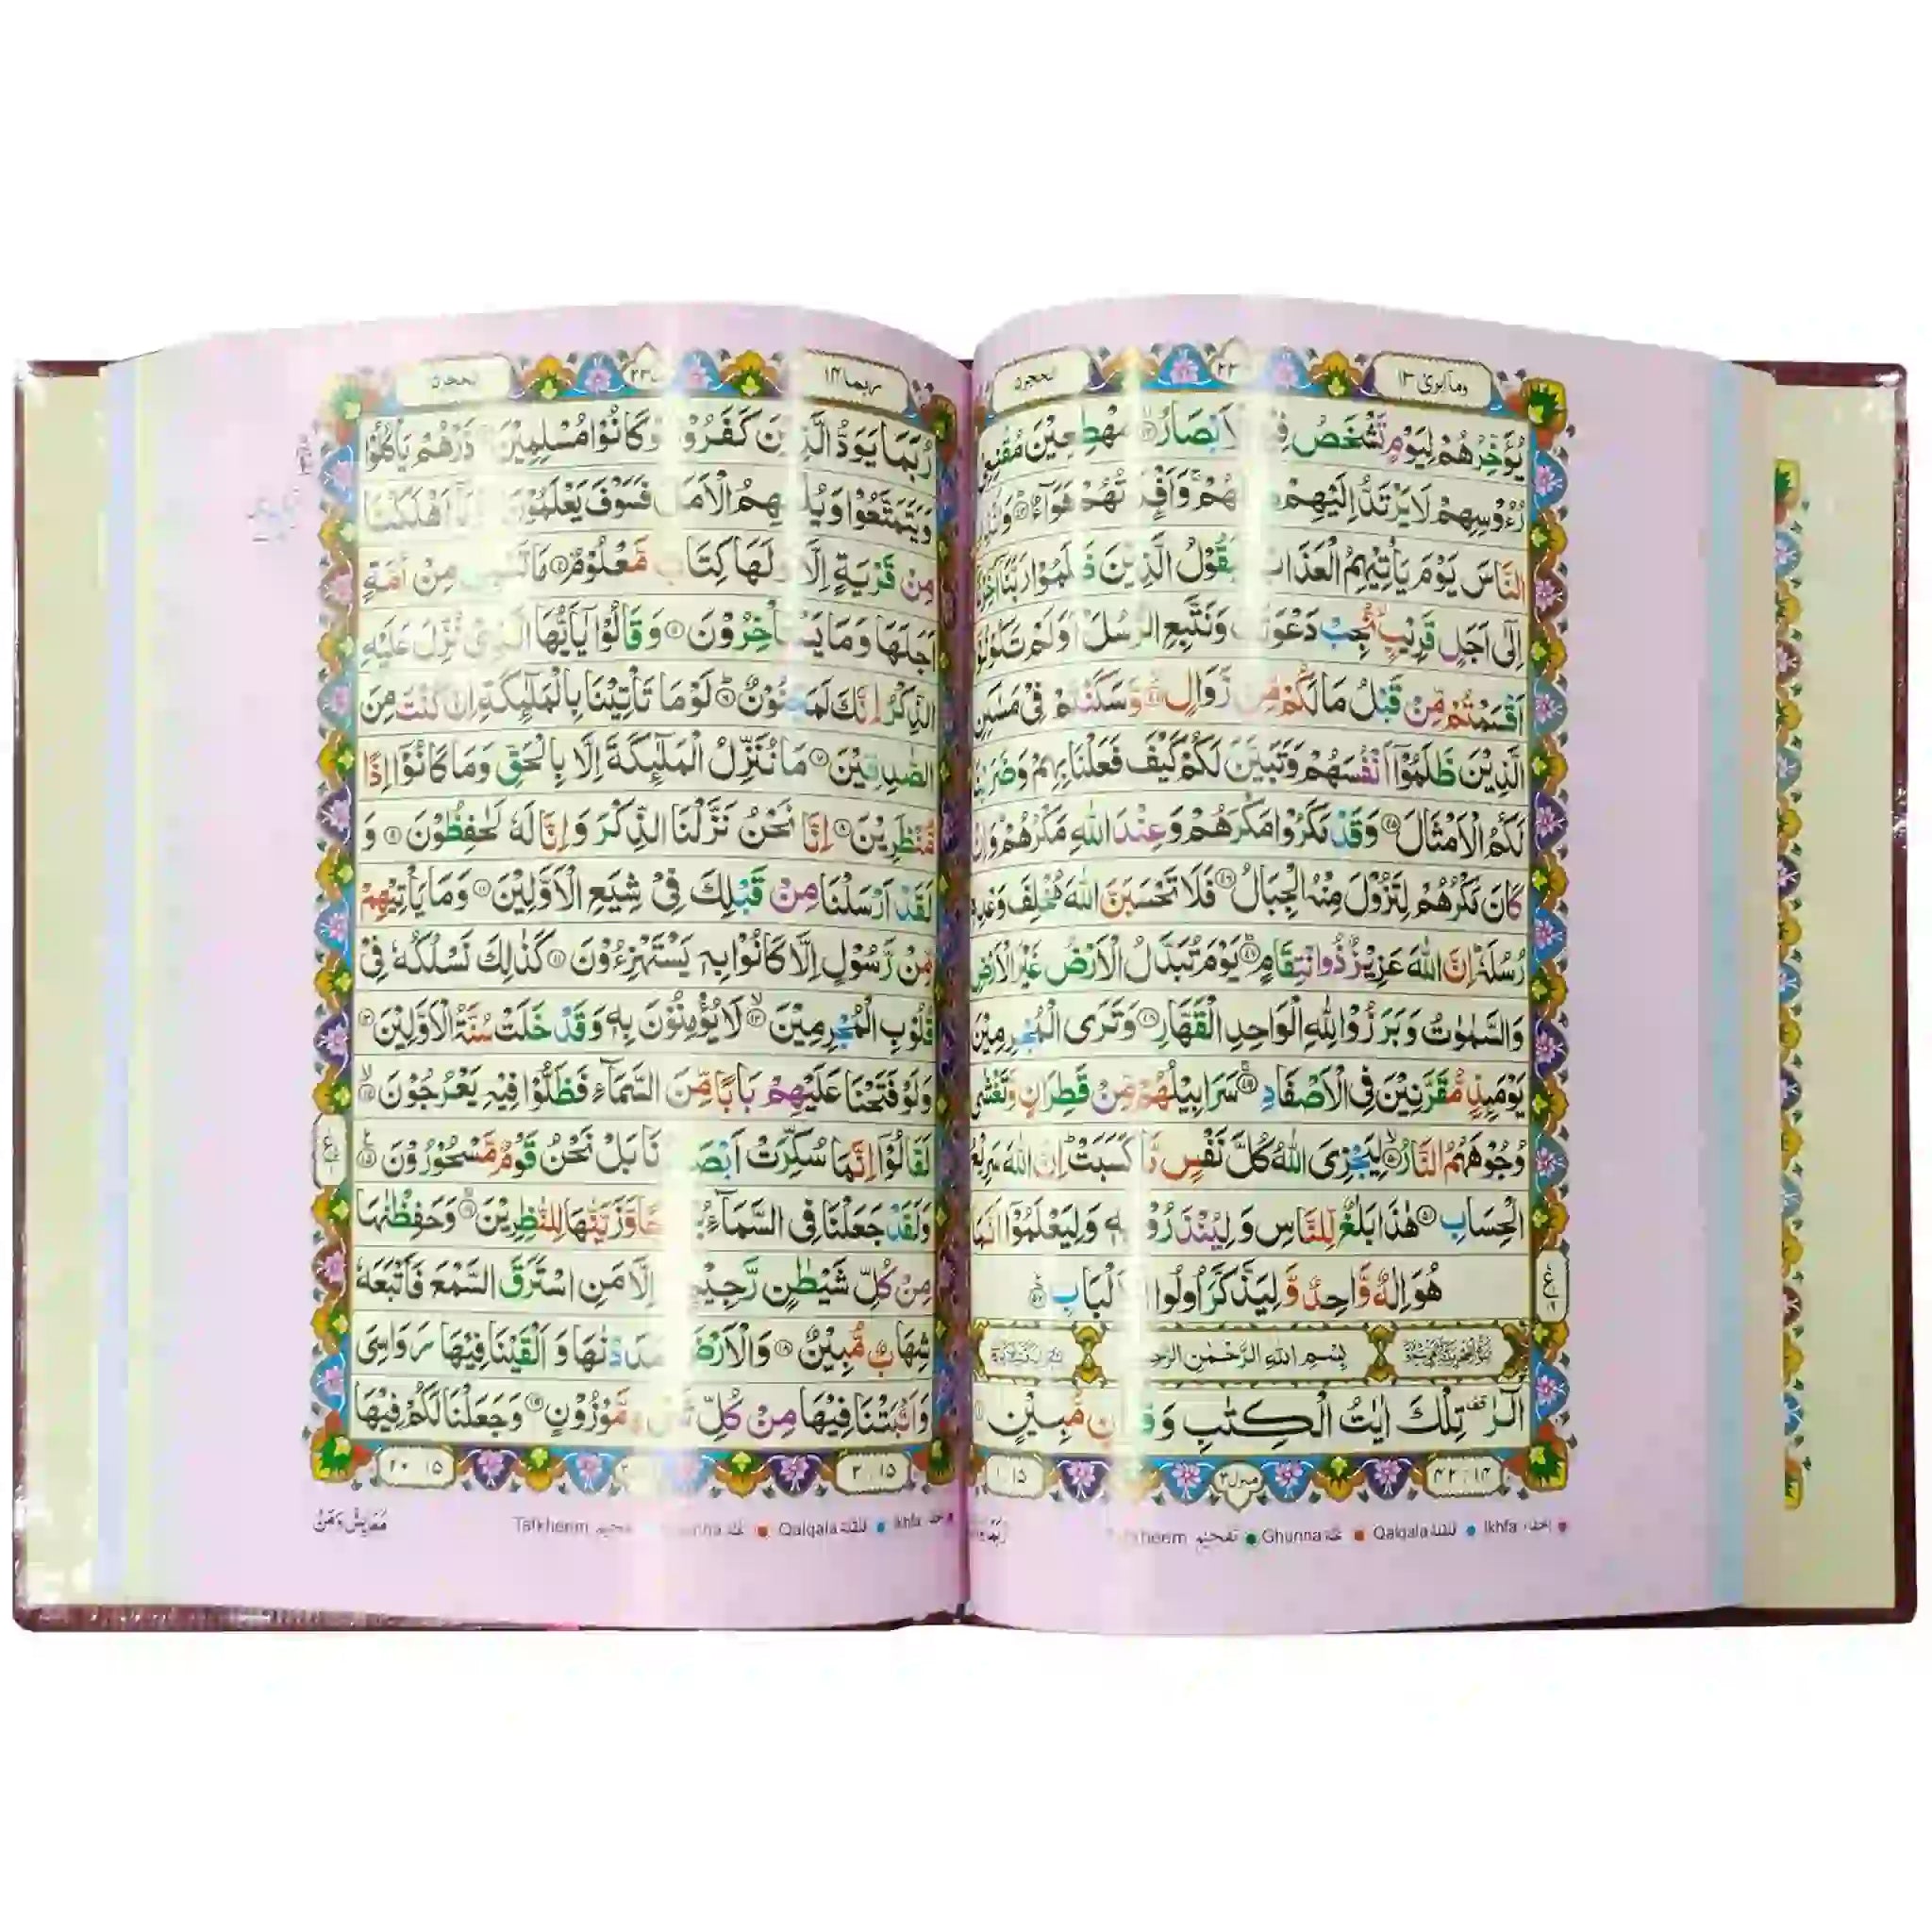 وما ابرئ ١٣
٢٣
الحجر ١٥
يُؤَخِّرُهُمْ لِيَوْمٍ تَشْخَصُ الْاَبْصَارُ مُهْطِعِيْنَ مُقْنِعِيْ
رُءُوْسِهِمْ لَا يَرْتَدُّ اِلَيْهِمْ وَاَفْـِٕدَتُهُمْ هَوَآءٌ
النَّاسَ يَوْمَ يَاْتِيْهِمُ الْعَذَابُ فَيَقُوْلُ الَّذِيْنَ ظَلَمُوْا رَبَّنَآ اَخِّرْنَآ
اِلٰٓى اَجَلٍ قَرِيْبٍ نُّجِبْ دَعْوَتَكَ وَنَتَّبِعِ الرُّسُلَ اَوَلَمْ تَكُوْنُوْٓا
اَقْسَمْتُمْ مِّنْ قَبْلُ مَا لَكُمْ مِّنْ زَوَالٍ ٤٤ وَّسَكَنْتُمْ فِيْ مَسٰكِنِ
الَّذِيْنَ ظَلَمُوْٓا اَنْفُسَهُمْ وَتَبَيَّنَ لَكُمْ كَيْفَ فَعَلْنَا بِهِمْ وَضَرَبْنَا
لَكُمُ الْاَمْثَالَ ٤٥ وَقَدْ مَكَرُوْا مَكْرَهُمْ وَعِنْدَ اللّٰهِ مَكْرُهُمْ وَاِنْ
كَانَ مَكْرُهُمْ لِتَزُوْلَ مِنْهُ الْجِبَالُ ٤٦ فَلَا تَحْسَبَنَّ اللّٰهَ مُخْلِفَ وَعْدِهٖ
رُسُلَهٗ اِنَّ اللّٰهَ عَزِيْزٌ ذُوانْتِقَامٍ ٤٧ يَوْمَ تُبَدَّلُ الْاَرْضُ غَيْرَ الْاَرْضِ
وَالسَّمٰوٰتُ وَبَرَزُوْا لِلّٰهِ الْوَاحِدِ الْقَهَّارِ ٤٨ وَتَرَى الْمُجْرِمِيْنَ
يَوْمَئِذٍ مُّقَرَّنِيْنَ فِي الْاَصْفَادِ ٤٩ سَرَابِيْلُهُمْ مِّنْ قَطِرَانٍ وَّتَغْشٰى
وُجُوْهَهُمُ النَّارُ ٥٠ لِيَجْزِيَ اللّٰهُ كُلَّ نَفْسٍ مَّا كَسَبَتْ اِنَّ اللّٰهَ سَرِيْعُ
الْحِسَابِ ٥١ هٰذَا بَلٰغٌ لِّلنَّاسِ وَلِيُنْذَرُوْا بِهٖ وَلِيَعْلَمُوْٓا اَنَّمَا
هُوَ اِلٰهٌ وَّاحِدٌ وَّلِيَذَّكَّرَ اُولُوا الْاَلْبَابِ ٥٢
بِسْمِ اللّٰهِ الرَّحْمٰنِ الرَّحِيْمِ
الٓرٰ تِلْكَ اٰيٰتُ الْكِتٰبِ وَقُرْاٰنٍ مُّبِيْنٍ ١
٤٢ : ١٤
منزل ٣
١ : ١٥
Ikhfa إخفاء Qalqala قلقلة Ghunna غنة Tafkheem تفخيم
رُبَمَا
ربما ١٤
٢٣
الحجر ١٥
رُبَمَا يَوَدُّ الَّذِيْنَ كَفَرُوْا لَوْ كَانُوْا مُسْلِمِيْنَ ذَرْهُمْ يَاْكُلُوْا
وَيَتَمَتَّعُوْا وَيُلْهِهِمُ الْاَمَلُ فَسَوْفَ يَعْلَمُوْنَ وَمَآ اَهْلَكْنَا
مِنْ قَرْيَةٍ اِلَّا وَلَهَا كِتَابٌ مَّعْلُوْمٌ ٤ مَا تَسْبِقُ مِنْ اُمَّةٍ
اَجَلَهَا وَمَا يَسْتَاْخِرُوْنَ ٥ وَقَالُوْا يٰٓاَيُّهَا الَّذِيْ نُزِّلَ عَلَيْهِ
الذِّكْرُ اِنَّكَ لَمَجْنُوْنٌ ٦ لَوْ مَا تَاْتِيْنَا بِالْمَلٰٓئِكَةِ اِنْ كُنْتَ مِنَ
الصّٰدِقِيْنَ ٧ مَا نُنَزِّلُ الْمَلٰٓئِكَةَ اِلَّا بِالْحَقِّ وَمَا كَانُوْٓا اِذًا
مُّنْظَرِيْنَ ٨ اِنَّا نَحْنُ نَزَّلْنَا الذِّكْرَ وَاِنَّا لَهٗ لَحٰفِظُوْنَ ٩ وَ
لَقَدْ اَرْسَلْنَا مِنْ قَبْلِكَ فِيْ شِيَعِ الْاَوَّلِيْنَ ١٠ وَمَا يَاْتِيْهِمْ
مِّنْ رَّسُوْلٍ اِلَّا كَانُوْا بِهٖ يَسْتَهْزِءُوْنَ ١١ كَذٰلِكَ نَسْلُكُهٗ فِيْ
قُلُوْبِ الْمُجْرِمِيْنَ ١٢ لَا يُؤْمِنُوْنَ بِهٖ وَقَدْ خَلَتْ سُنَّةُ الْاَوَّلِيْنَ ١٣
وَلَوْ فَتَحْنَا عَلَيْهِمْ بَابًا مِّنَ السَّمَآءِ فَظَلُّوْا فِيْهِ يَعْرُجُوْنَ ١٤
لَقَالُوْٓا اِنَّمَا سُكِّرَتْ اَبْصَارُنَا بَلْ نَحْنُ قَوْمٌ مَّسْحُوْرُوْنَ ١٥
وَلَقَدْ جَعَلْنَا فِي السَّمَآءِ بُرُوْجًا وَّزَيَّنّٰهَا لِلنّٰظِرِيْنَ ١٦ وَحَفِظْنٰهَا
مِنْ كُلِّ شَيْطٰنٍ رَّجِيْمٍ اِلَّا مَنِ اسْتَرَقَ السَّمْعَ فَاَتْبَعَهٗ
شِهَابٌ مُّبِيْنٌ ١٨ وَالْاَرْضَ مَدَدْنٰهَا وَاَلْقَيْنَا فِيْهَا رَوَاسِيَ
وَاَنْۢبَتْنَا فِيْهَا مِنْ كُلِّ شَيْءٍ مَّوْزُوْنٍ ١٩ وَجَعَلْنَا لَكُمْ فِيْهَا
٢ : ١٥
٢٠ : ١٥
Ikhfa إخفاء Qalqala قلقلة Ghunna غنة Tafkheem تفخيم
مَعَايِشَ وَمَنْ